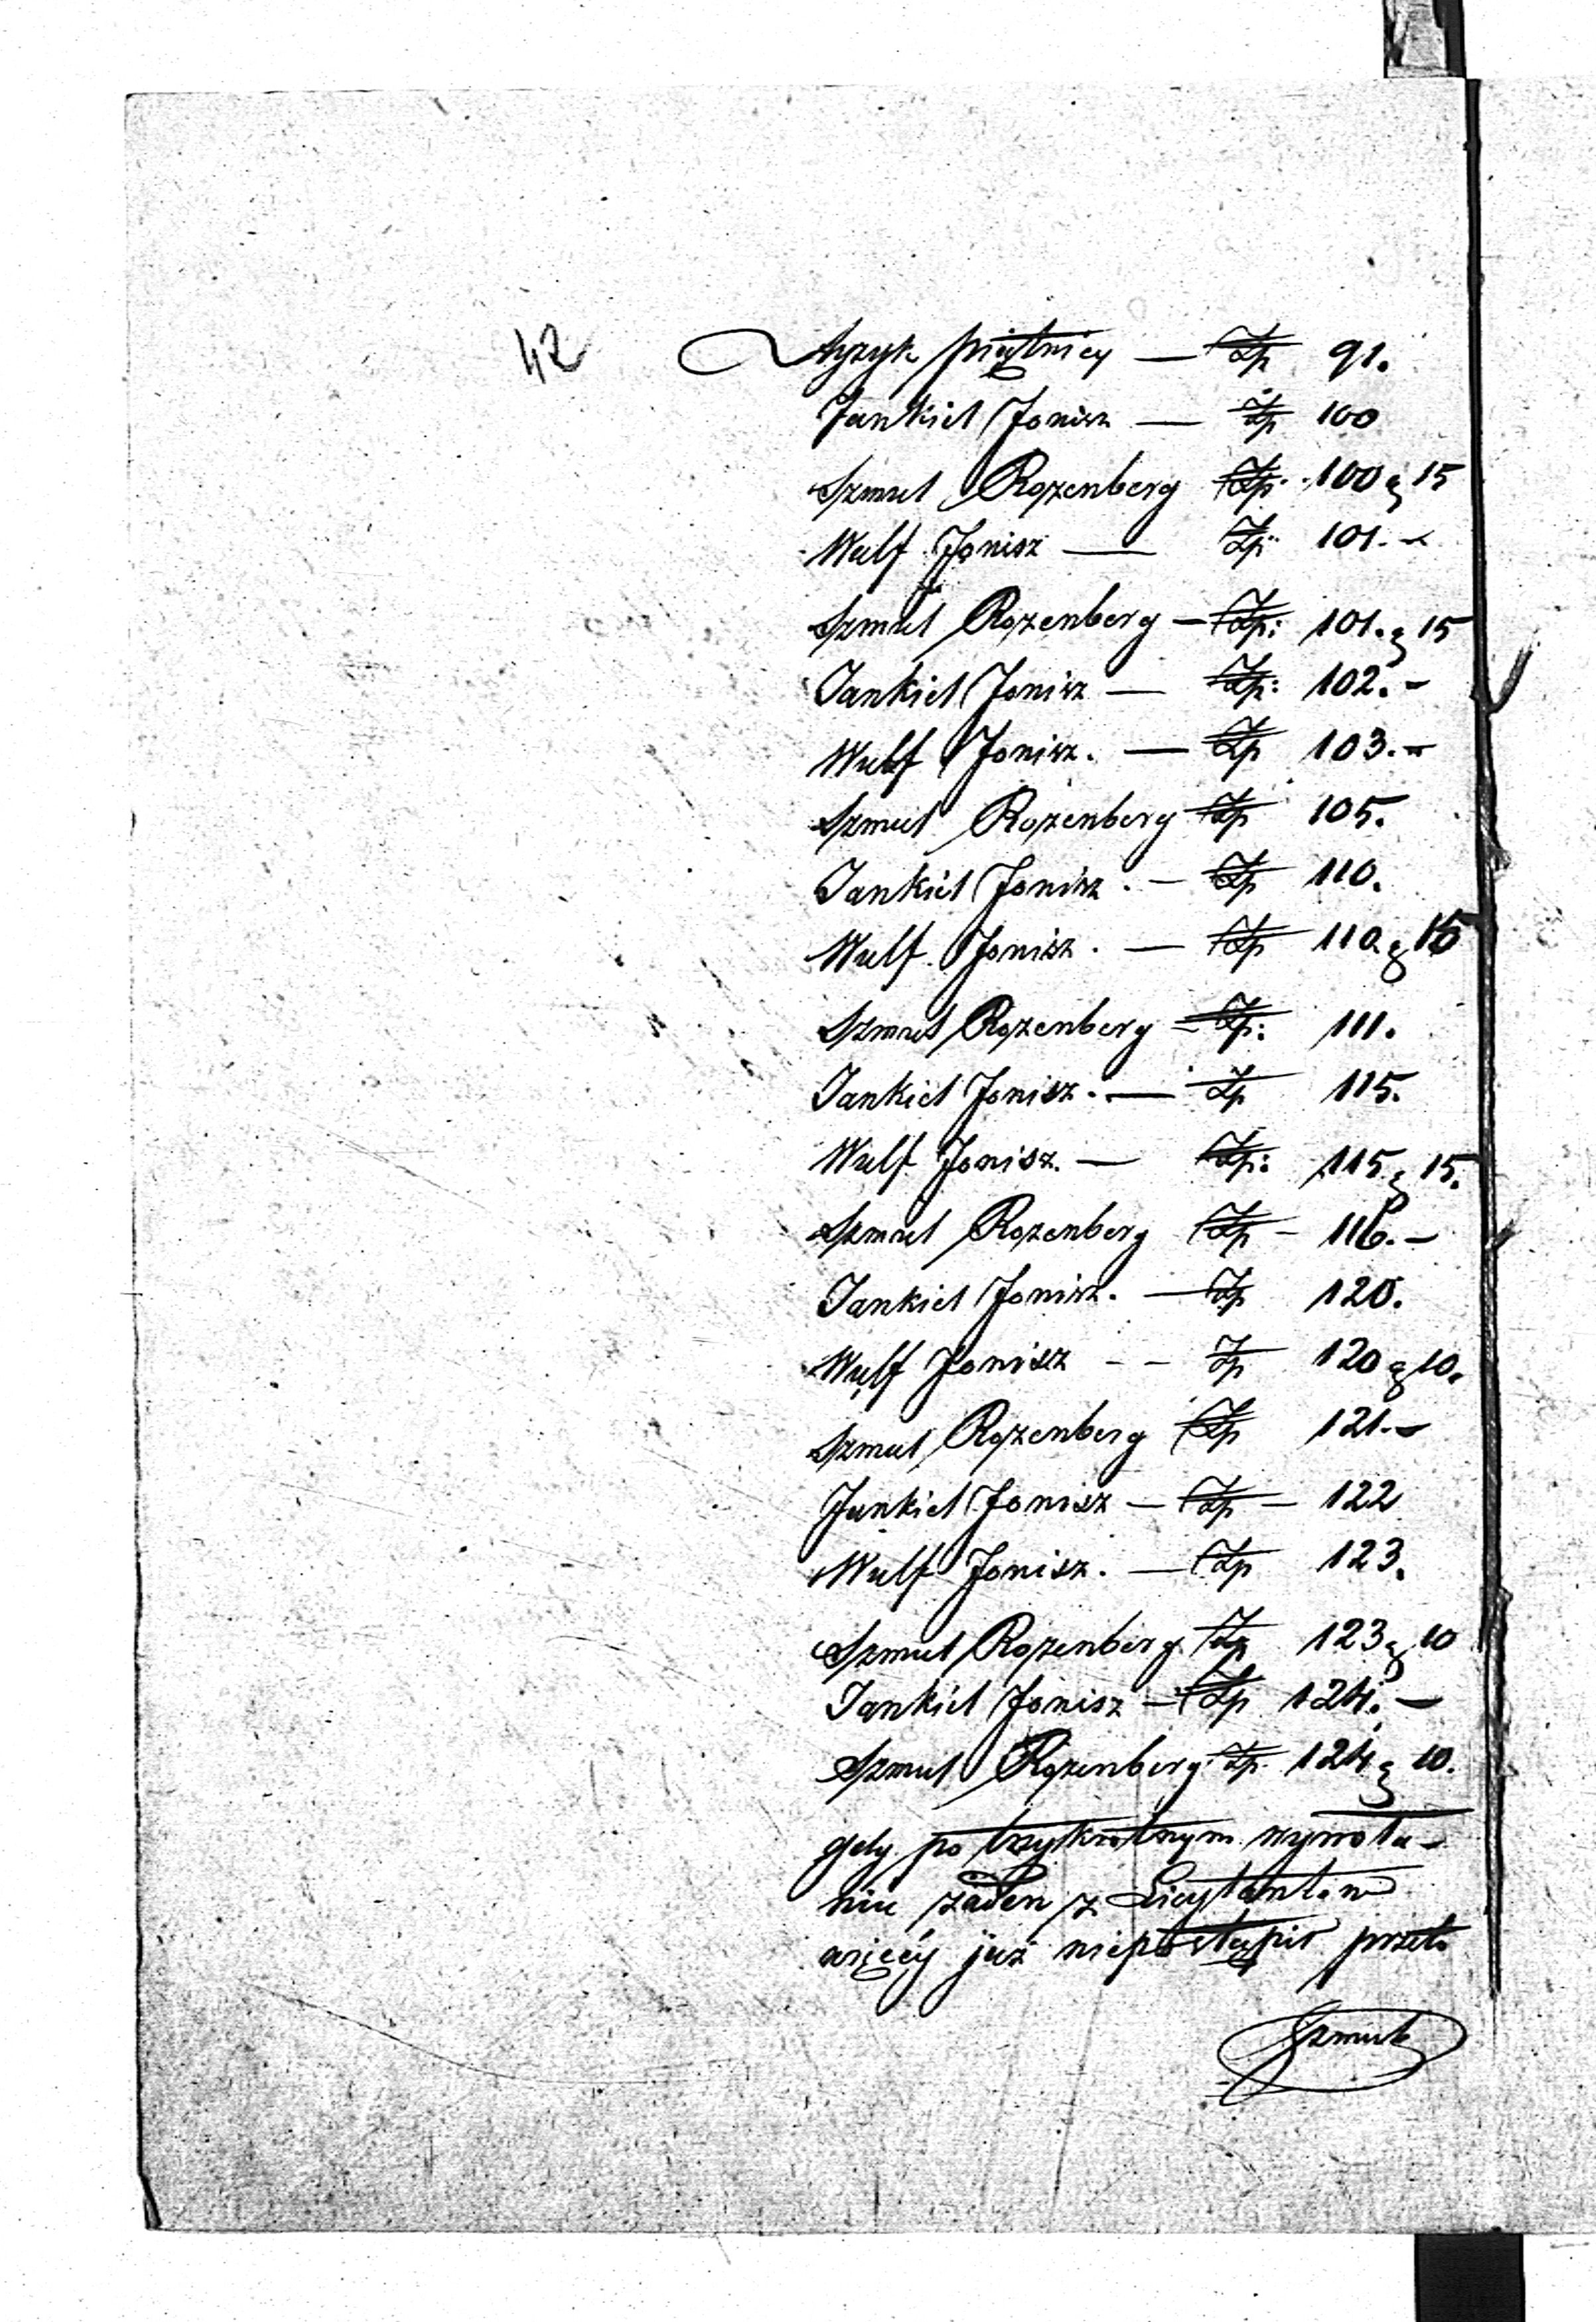 42
Ayzyk piątnicy — Zp 91.
Jankiel Jonisz — Zp 100
Szmul Rozenberg Zp. 100 g 15
Wulf Jonisz — Zp. 101. -
Szmul Rozenberg — Zp: 101. g 15
Jankiel Jonisz — Zp: 102. -
Wulf Jonisz. — Zp 103. -
Szmul Rozenberg Zp 105.
Jankiel Jonisz. — Zp 110.
Wulf Jonisz. — Zp 110 g 15
Szmul Rozenberg - Zp: 111.
Jankiel Jonisz. — Zp 115.
Wulf Jonisz. — Zp: 115 g 15.
Szmul Rozenberg Zp - 116. -
Jankiel Jonisz. — Zp 120.
Wulf Jonisz - - Zp 120 g 10.
Szmul Rozenberg Zp 121. -
Jankiel Jonisz — Zp — 122
Wulf Jonisz. — Zp 123.
Szmul Rozenberg Zp 123 g 10
Jankiel Jonisz — Zp 124. -
Szmul Rozenberg Zp. 124 g 10.
gdy po trzykrotnym wywoła-
niu żaden z Licytantow
więcéy już niepostąpił przeto
Szmul